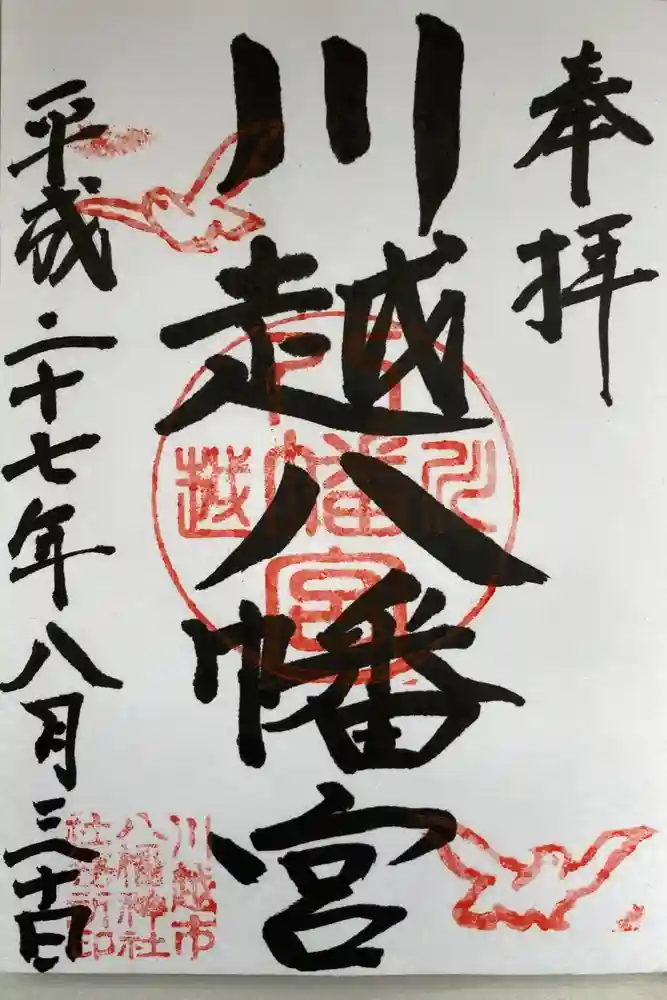 奉拝
川越八幡宮
平成二十七年八月三十日
川越
八幡宮
川越市
八幡神社
社務所印